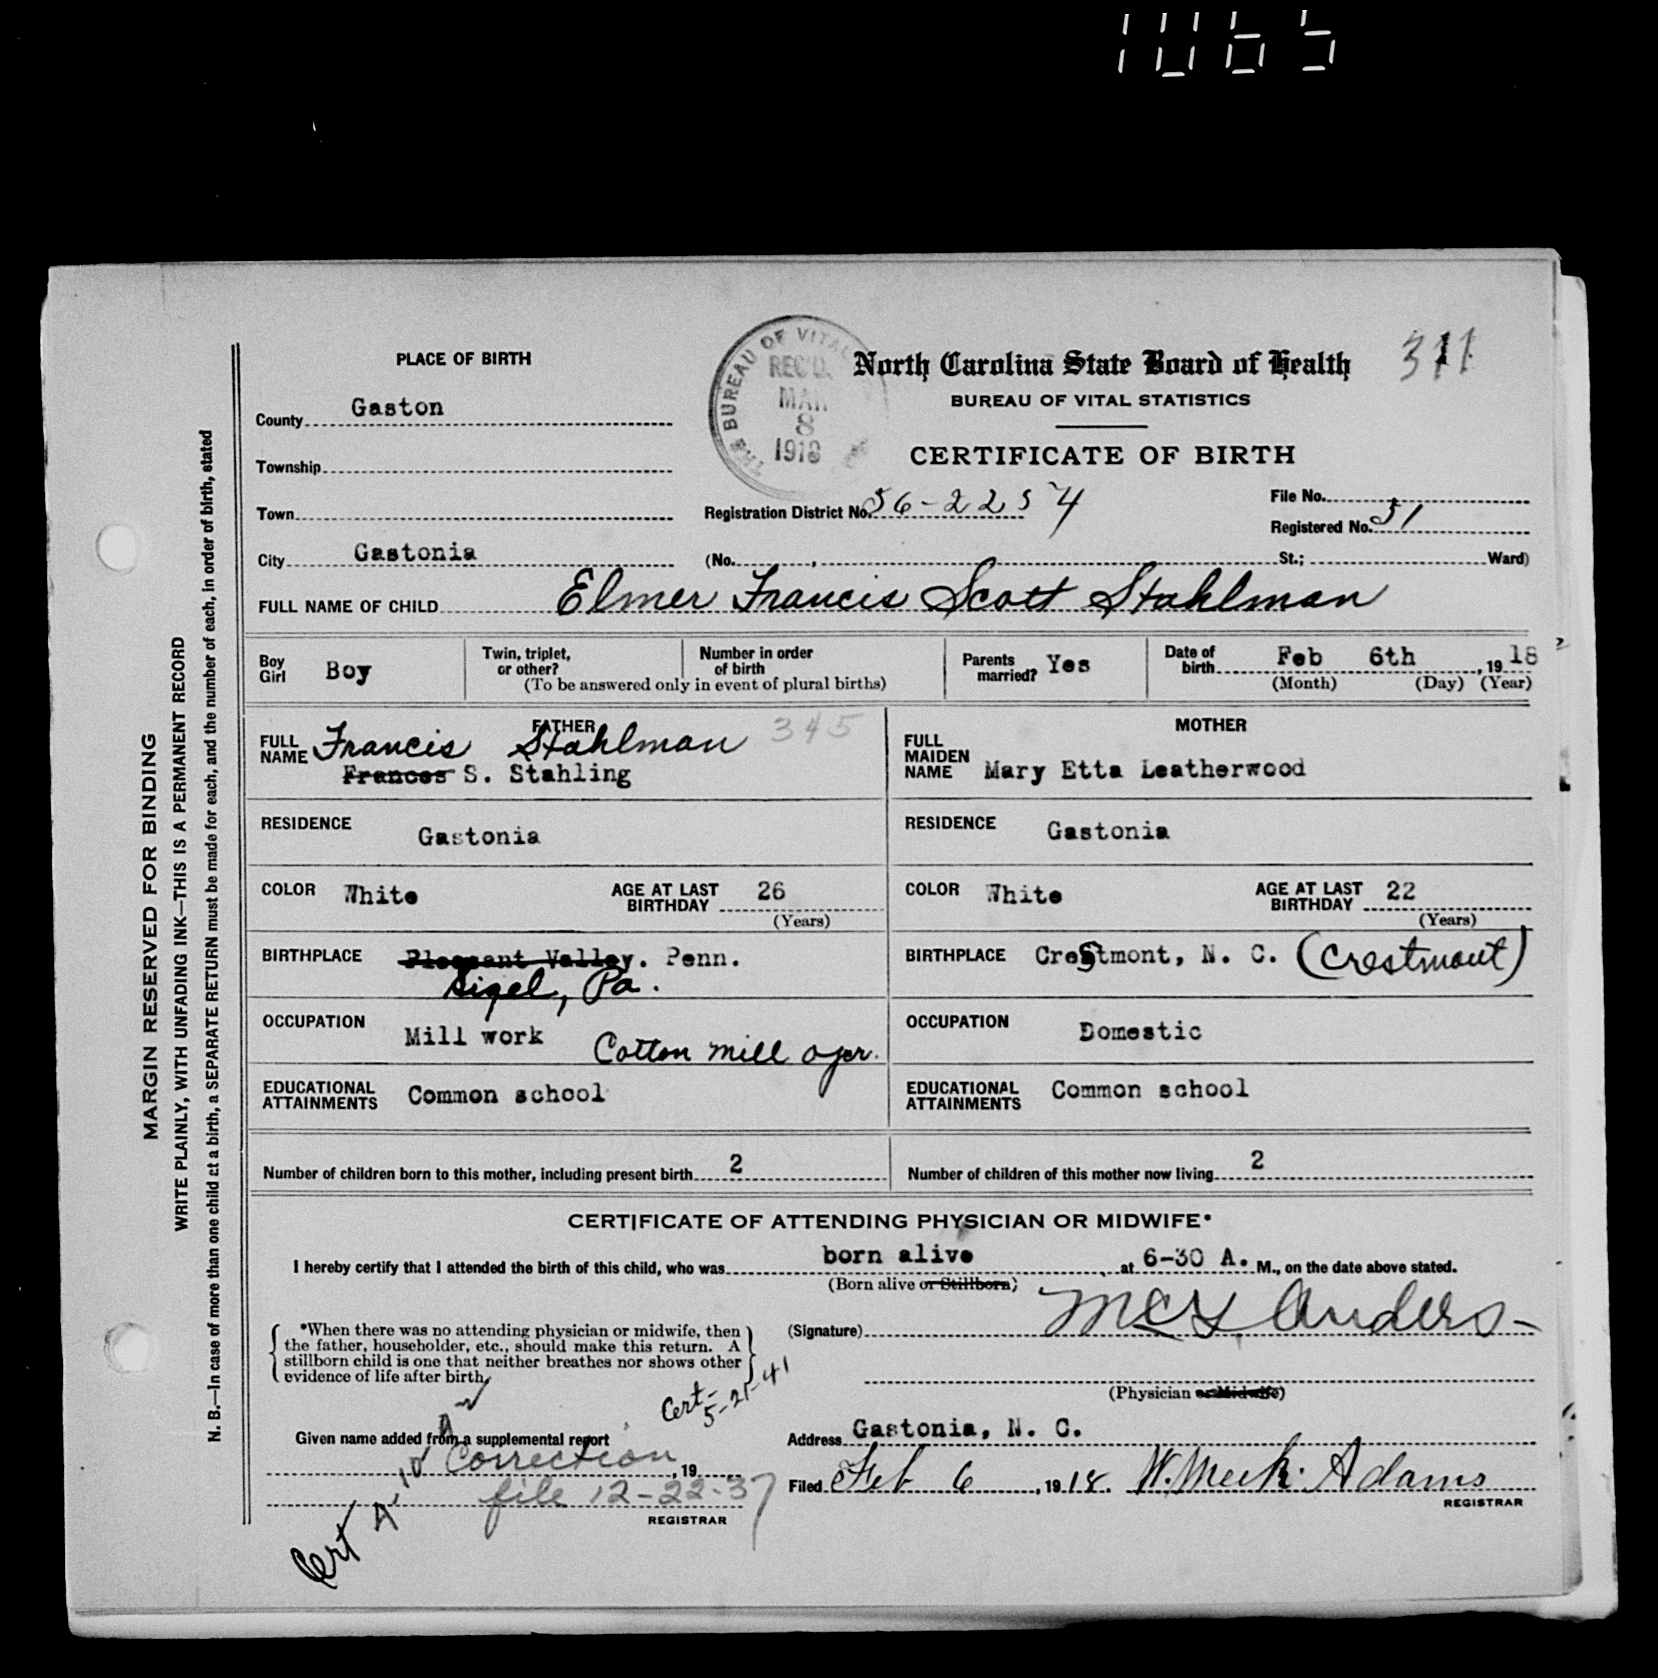 1065
311
PLACE OF BIRTH
THE BUREAU OF VITAL
REC'D.
MAR
8
1918
North Carolina State Board of Health
BUREAU OF VITAL STATISTICS
CERTIFICATE OF BIRTH
County Gaston
Township
Town
Registration District No. 36-2254
File No.
Registered No. 51
City Gastonia (No. , St.; Ward)
FULL NAME OF CHILD Elmer Francis Scott Stahlman
Boy
Girl Boy
Twin, triplet,
or other?
Number in order
of birth
(To be answered only in event of plural births)
Parents
married? Yes
Date of
birth Feb 6th, 1918
(Month) (Day) (Year)
FATHER
345
FULL
NAME Francis Stahlman
Frances S. Stahling
RESIDENCE Gastonia
COLOR White
AGE AT LAST
BIRTHDAY 26
(Years)
BIRTHPLACE Pleasant Valley. Penn.
Sigel, Pa.
OCCUPATION Mill work Cotton mill oper.
EDUCATIONAL
ATTAINMENTS Common school
MOTHER
FULL
MAIDEN
NAME Mary Etta Leatherwood
RESIDENCE Gastonia
COLOR White
AGE AT LAST
BIRTHDAY 22
(Years)
BIRTHPLACE Crestmont, N. C. (Crestmont)
OCCUPATION Domestic
EDUCATIONAL
ATTAINMENTS Common school
Number of children born to this mother, including present birth 2
Number of children of this mother now living 2
CERTIFICATE OF ATTENDING PHYSICIAN OR MIDWIFE*
I hereby certify that I attended the birth of this child, who was born alive at 6-30 A. M., on the date above stated.
(Born alive or Stillborn)
*When there was no attending physician or midwife, then
the father, householder, etc., should make this return. A
stillborn child is one that neither breathes nor shows other
evidence of life after birth.
(Signature) Anders
(Physician or Midwife)
Cert-
5-21-41
Given name added from a supplemental report
Correction, 19
file 12-22-37
REGISTRAR
Cert
Address Gastonia, N. C.
Filed Feb 6, 1918. W. Meek Adams
REGISTRAR
MARGIN RESERVED FOR BINDING
WRITE PLAINLY, WITH UNFADING INK—THIS IS A PERMANENT RECORD
N. B.—In case of more than one child at a birth, a SEPARATE RETURN must be made for each, and the number of each, in order of birth, stated